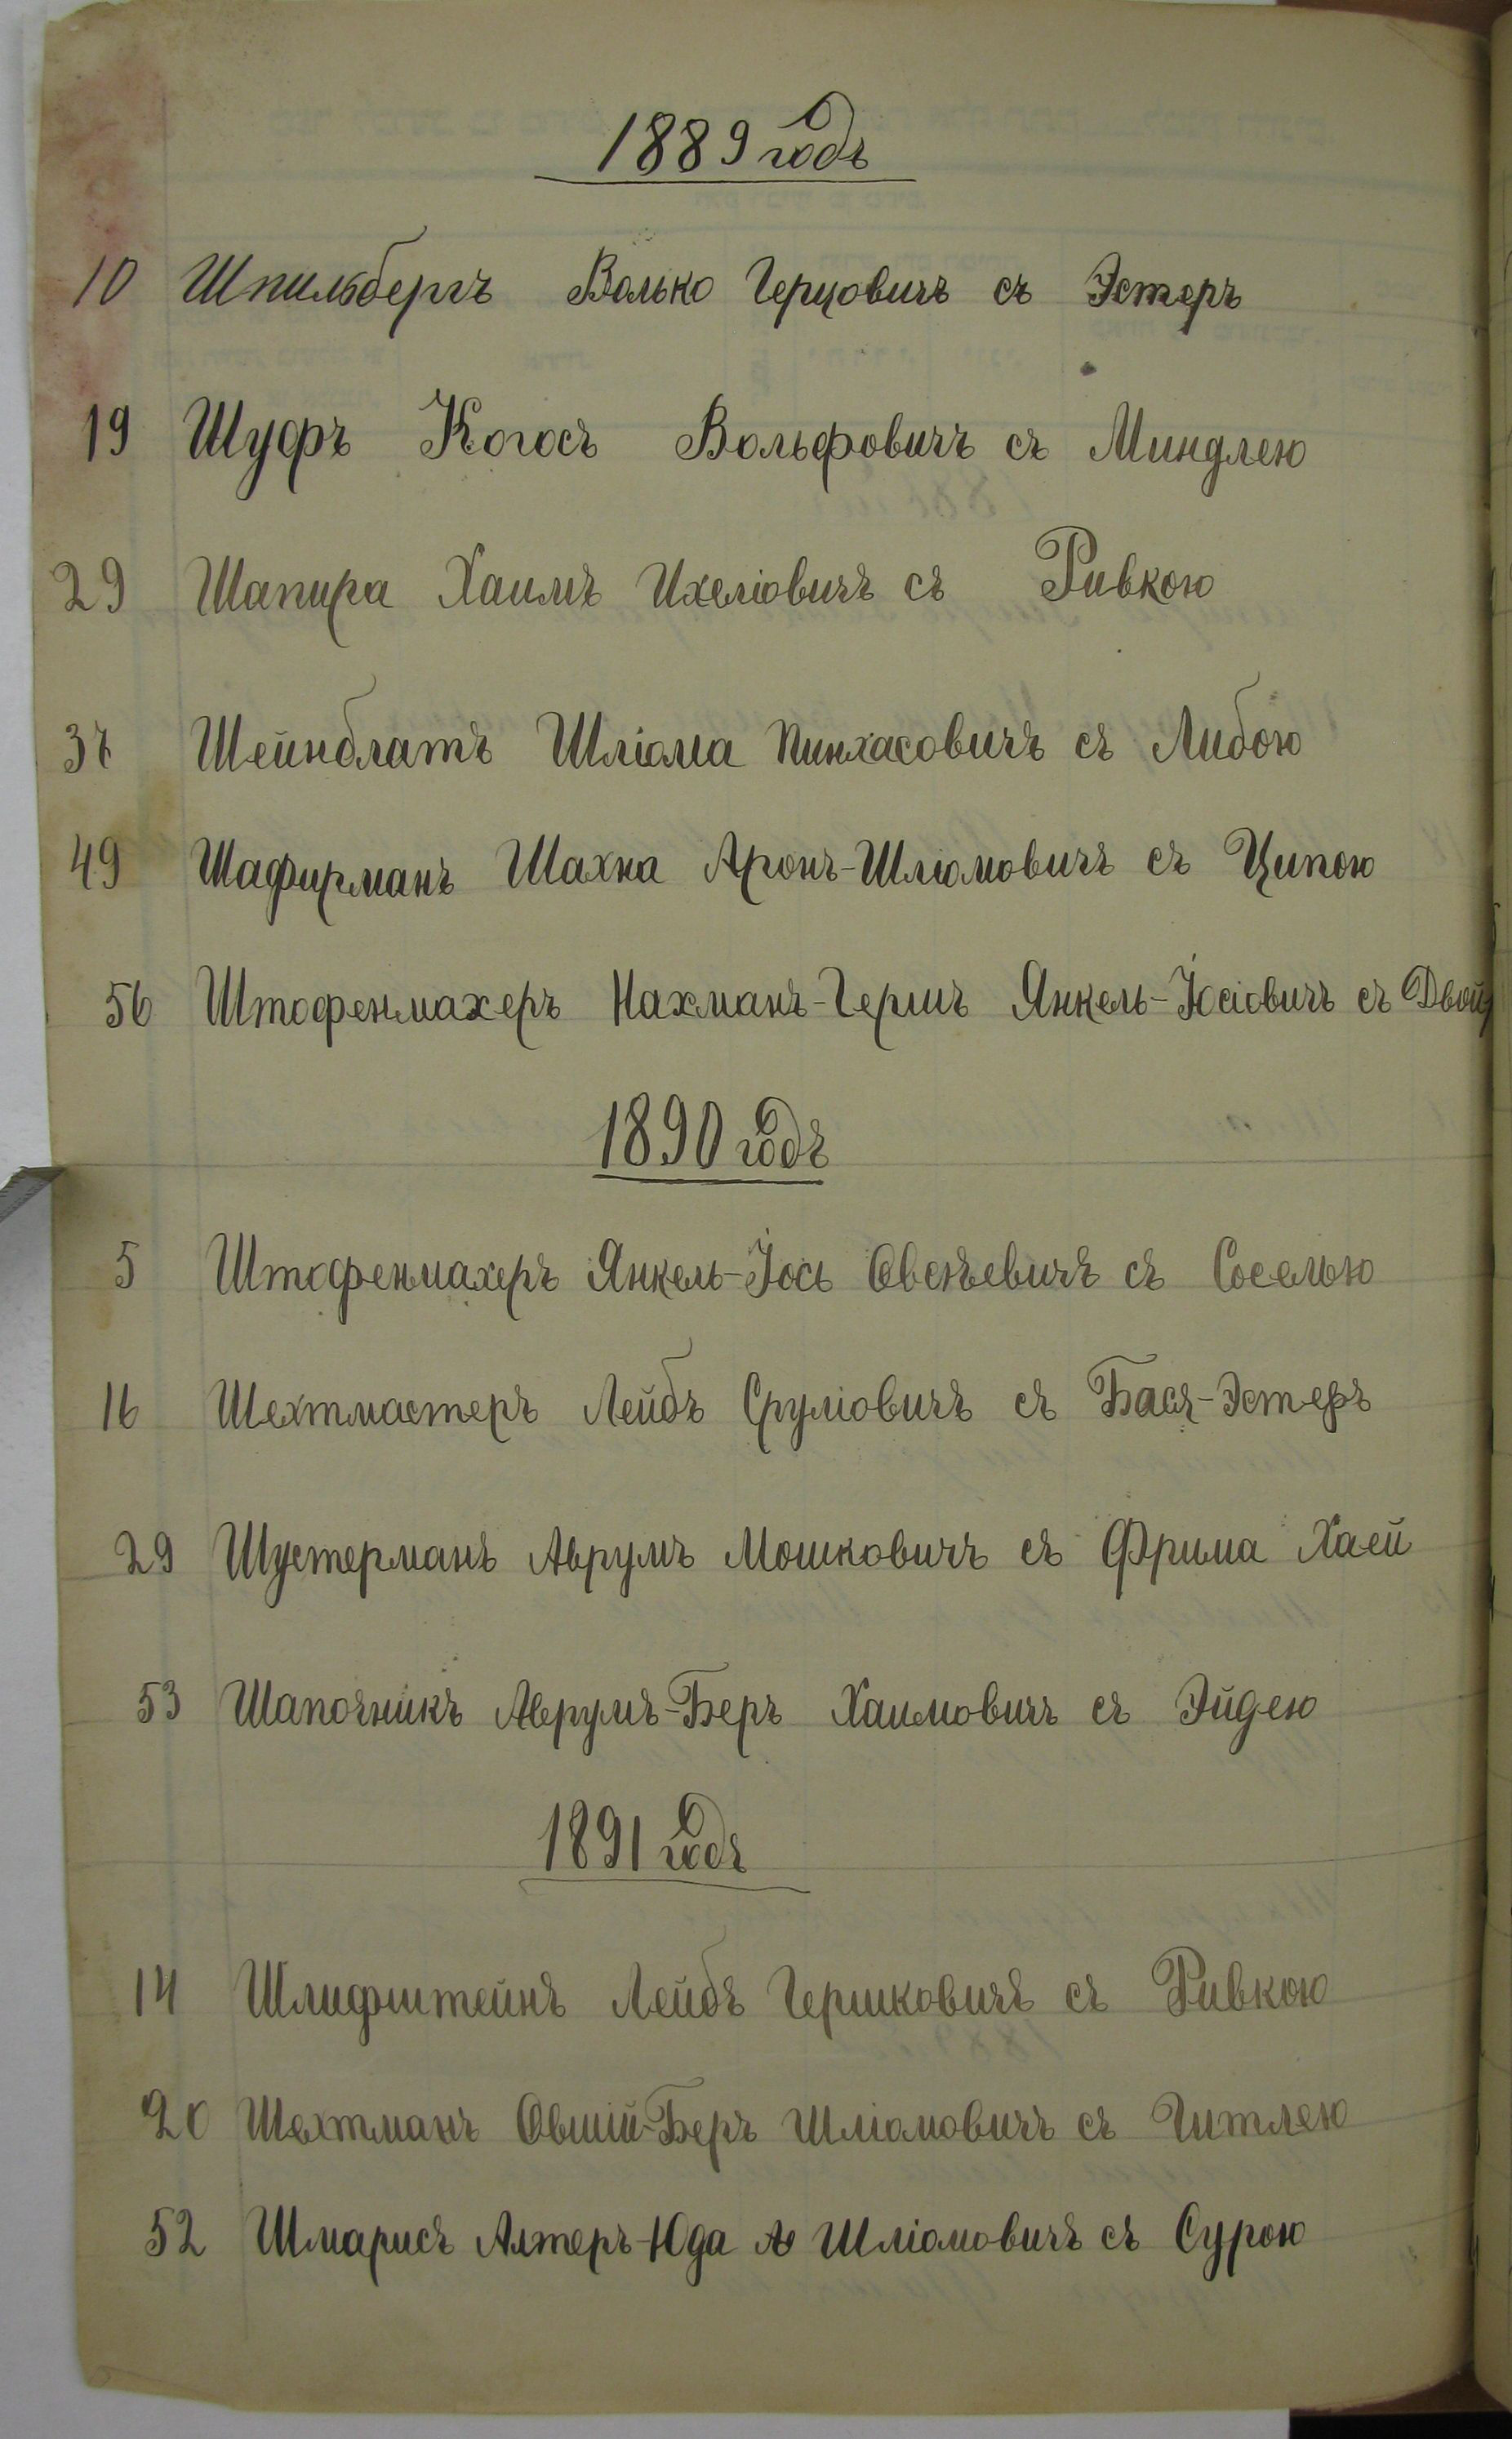 1889 годъ
10 Шпильбергъ Волько Герцовичъ съ Эстеръ
19 Шуфъ Когосъ Вольфовичъ съ Миндлею
29 Шапира Хаимъ Ихеліовичъ съ Ривкою
37 Шейнблатъ Шліома Пинхасовичъ съ Либою
49 Шафирманъ Шахна Аронъ-Шліомовичъ съ Ципою
56 Штофенмахеръ Нахманъ-Гершъ Янкель-Іосіовичъ съ Двой
1890 годъ
5 Штофенмахеръ Янкель-Іось Овсѣевичъ съ Соселью
16 Шехтмастеръ Лейбъ Сруліовичъ съ Бася-Эстеръ
29 Шустерманъ Аврумъ Мошковичъ съ Фрима Хаей
53 Шапочникъ Аврумъ-Беръ Хаимовичъ съ Эйдею
1891 годъ
14 Шлифштейнъ Лейбъ Гершковичъ съ Ривкою
20 Шехтманъ Овшій-Беръ Шліомовичъ съ Гитлею
52 Шмарисъ Алтеръ-Юда Шліомовичъ съ Сурою